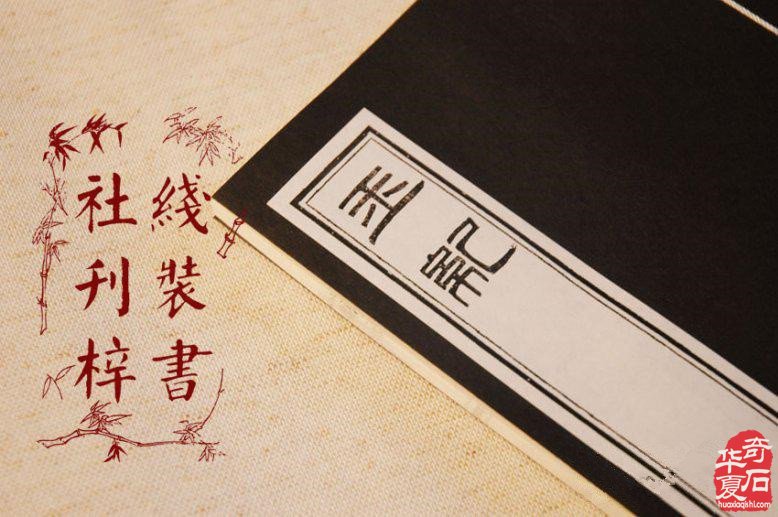 綫裝書
社刊梓
华夏
奇石
huaxiaqishi.com